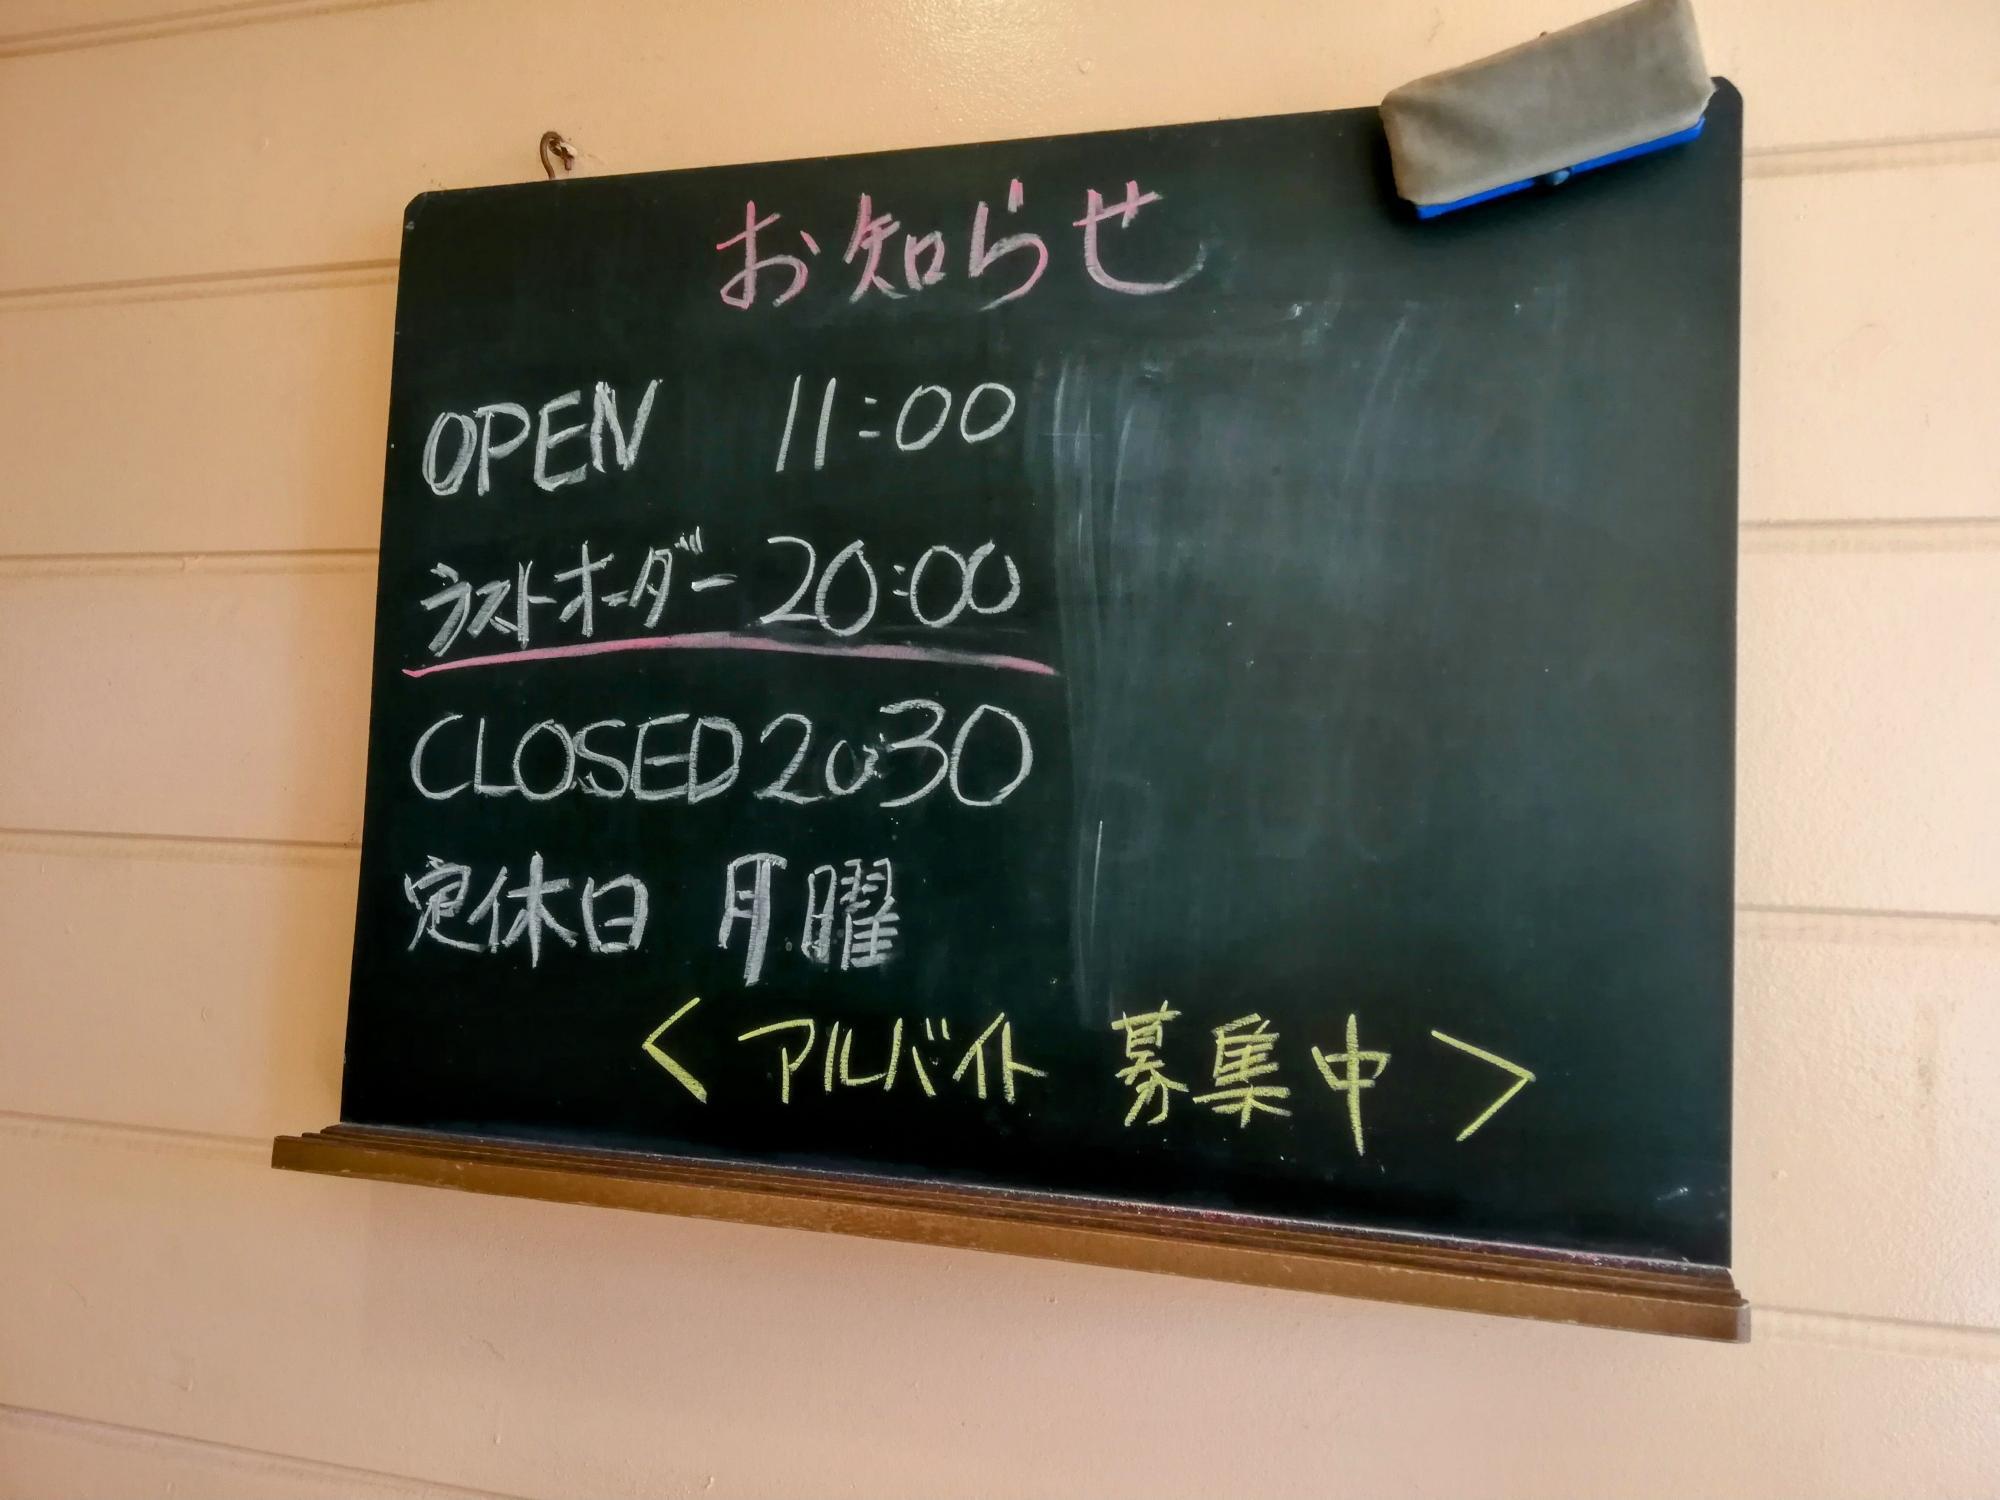 お知らせ
OPEN 11:00
ラストオーダー 20:00
CLOSED 20:30
定休日 月曜
<アルバイト 募集中>